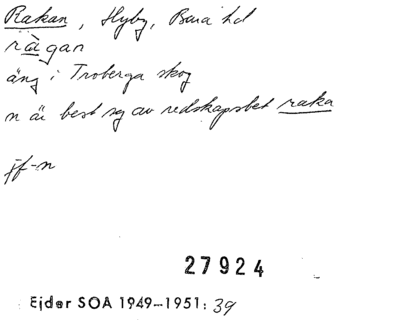 Rakan, Hyby, Bara hd
rågan
äng i Troberga skog
n är best sg av redskapsbet raka
jf-n
27924
Ejder SOA 1949–1951: 39